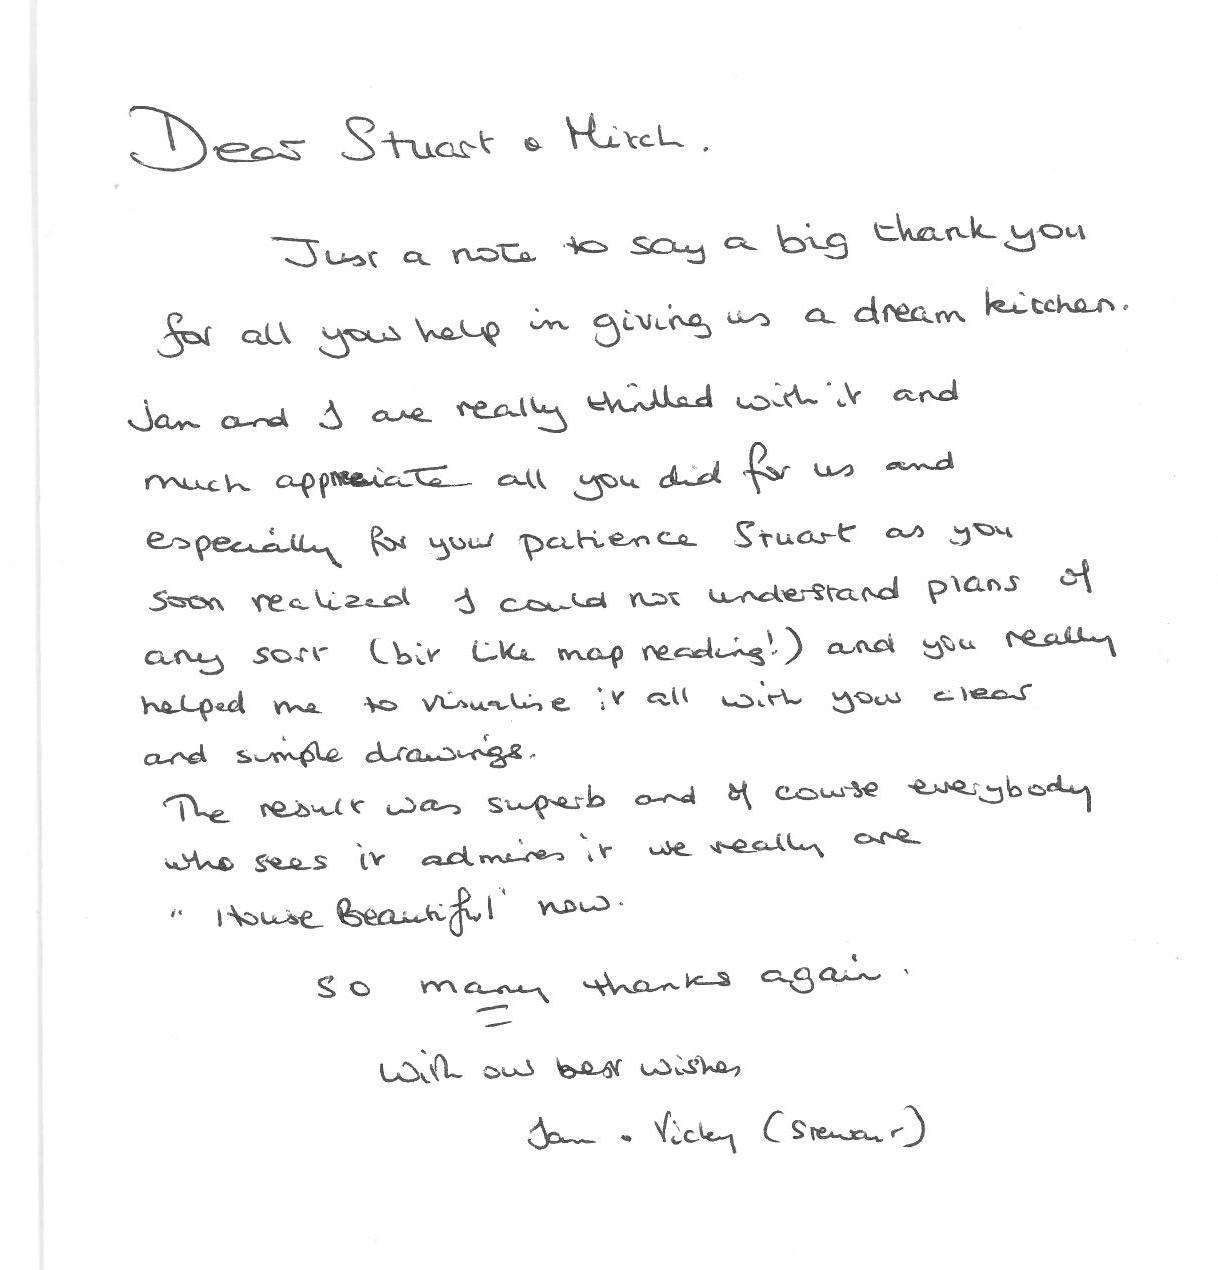 Dear Stuart & Mitch.
Just a note to say a big thank you
for all your help in giving us a dream kitchen.
Jan and I are really thrilled with it and
much appreciate all you did for us and
especially for your patience Stuart as you
soon realized I could not understand plans of
any sort (bit like map reading!) and you really
helped me to visualise it all with your clear
and simple drawings.
The result was superb and of course everybody
who sees it admires it we really are
"House Beautiful" now.
So many thanks again.
With our best wishes
Jan & Vicky (Stewart)